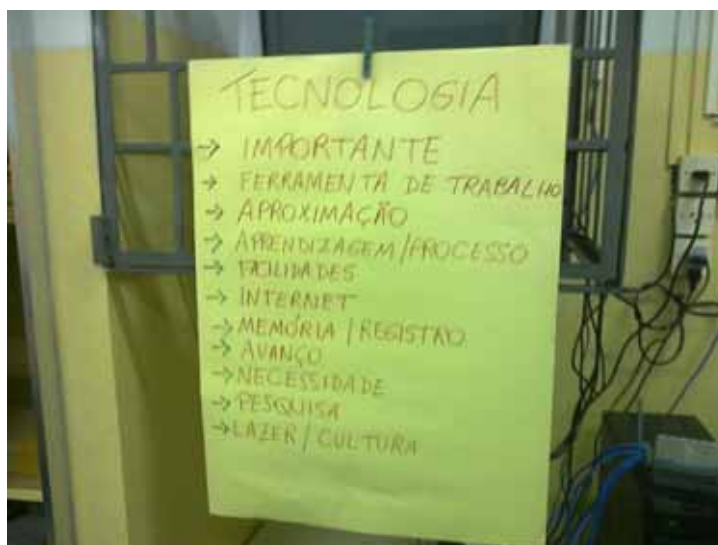 TECNOLOGIA
→ IMPORTANTE
→ FERRAMENTA DE TRABALHO
→ APROXIMAÇÃO
→ APRENDIZAGEM/PROCESSO
→ FACILIDADES
→ INTERNET
→ MEMÓRIA / REGISTRO
→ AVANÇO
→ NECESSIDADE
→ PESQUISA
→ LAZER / CULTURA